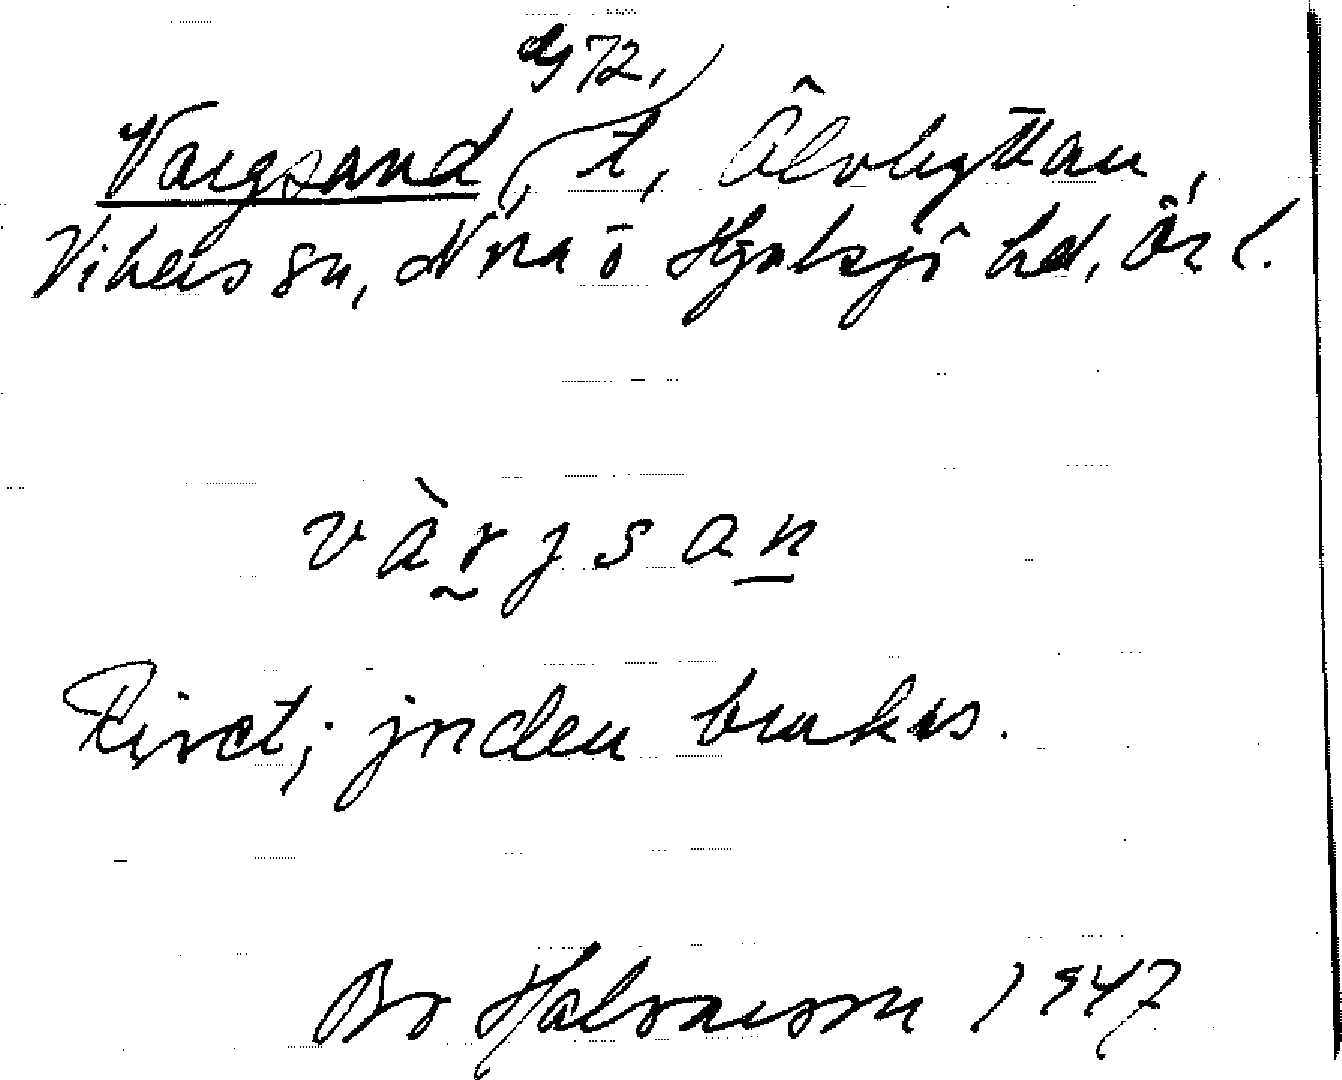 972.
Vargsand, t, Älvhyttan,
Vikers sn, Nora o Hjulsjö hd, Ör l.
vàrjsan
Rivet; jorden brukas.
Bo Halvarsson 1947